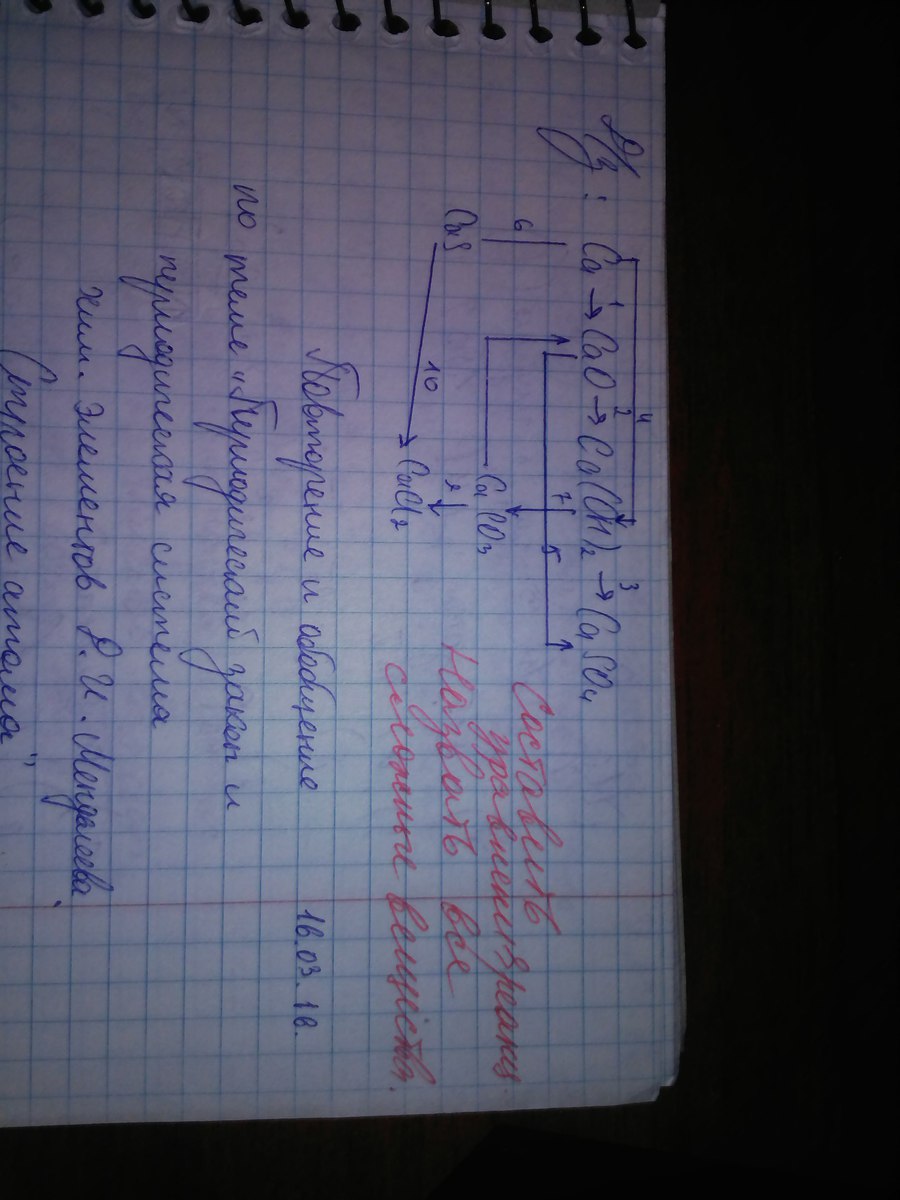 Д/з: Ca →1 CaO →2 Ca(OH)2 →3 CaSO4
4
6 7 5
CaS CaCO3
10 9
CaCl2
Составить
уравнения реакц
Назвать все
сложные вещества.
Повторение и обобщение 16.03.16.
по теме „Периодический закон и
периодическая система
хим. элементов Д. И. Менделеева.
Строение атома"